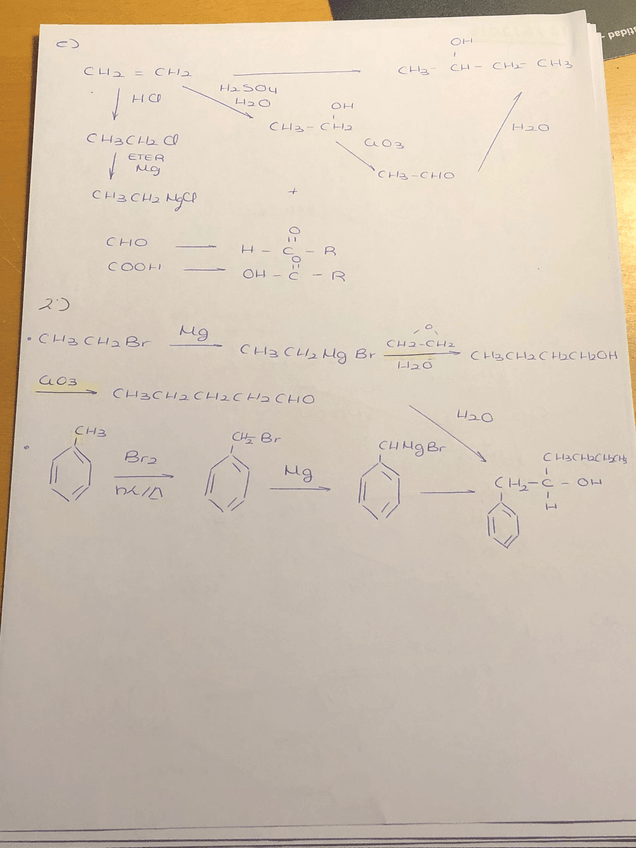 c)
OH
CH2 = CH2 CH3- CH - CH2 - CH3
HCl H2SO4
H2O OH
CH3 - CH2
CH3CH2Cl CrO3 H2O
ETER
Mg CH3-CHO
CH3CH2MgCl +
O
CHO H - C - R
O
COOH OH - C - R
2')
O
• CH3CH2Br Mg CH3CH2MgBr CH2-CH2 CH3CH2CH2CH2OH
H2O
CrO3 CH3CH2CH2CH2CHO
H2O
• CH3 CH2Br CHMgBr CH3CH2CH2CH2
Br2 Mg
CH2-C-OH
H